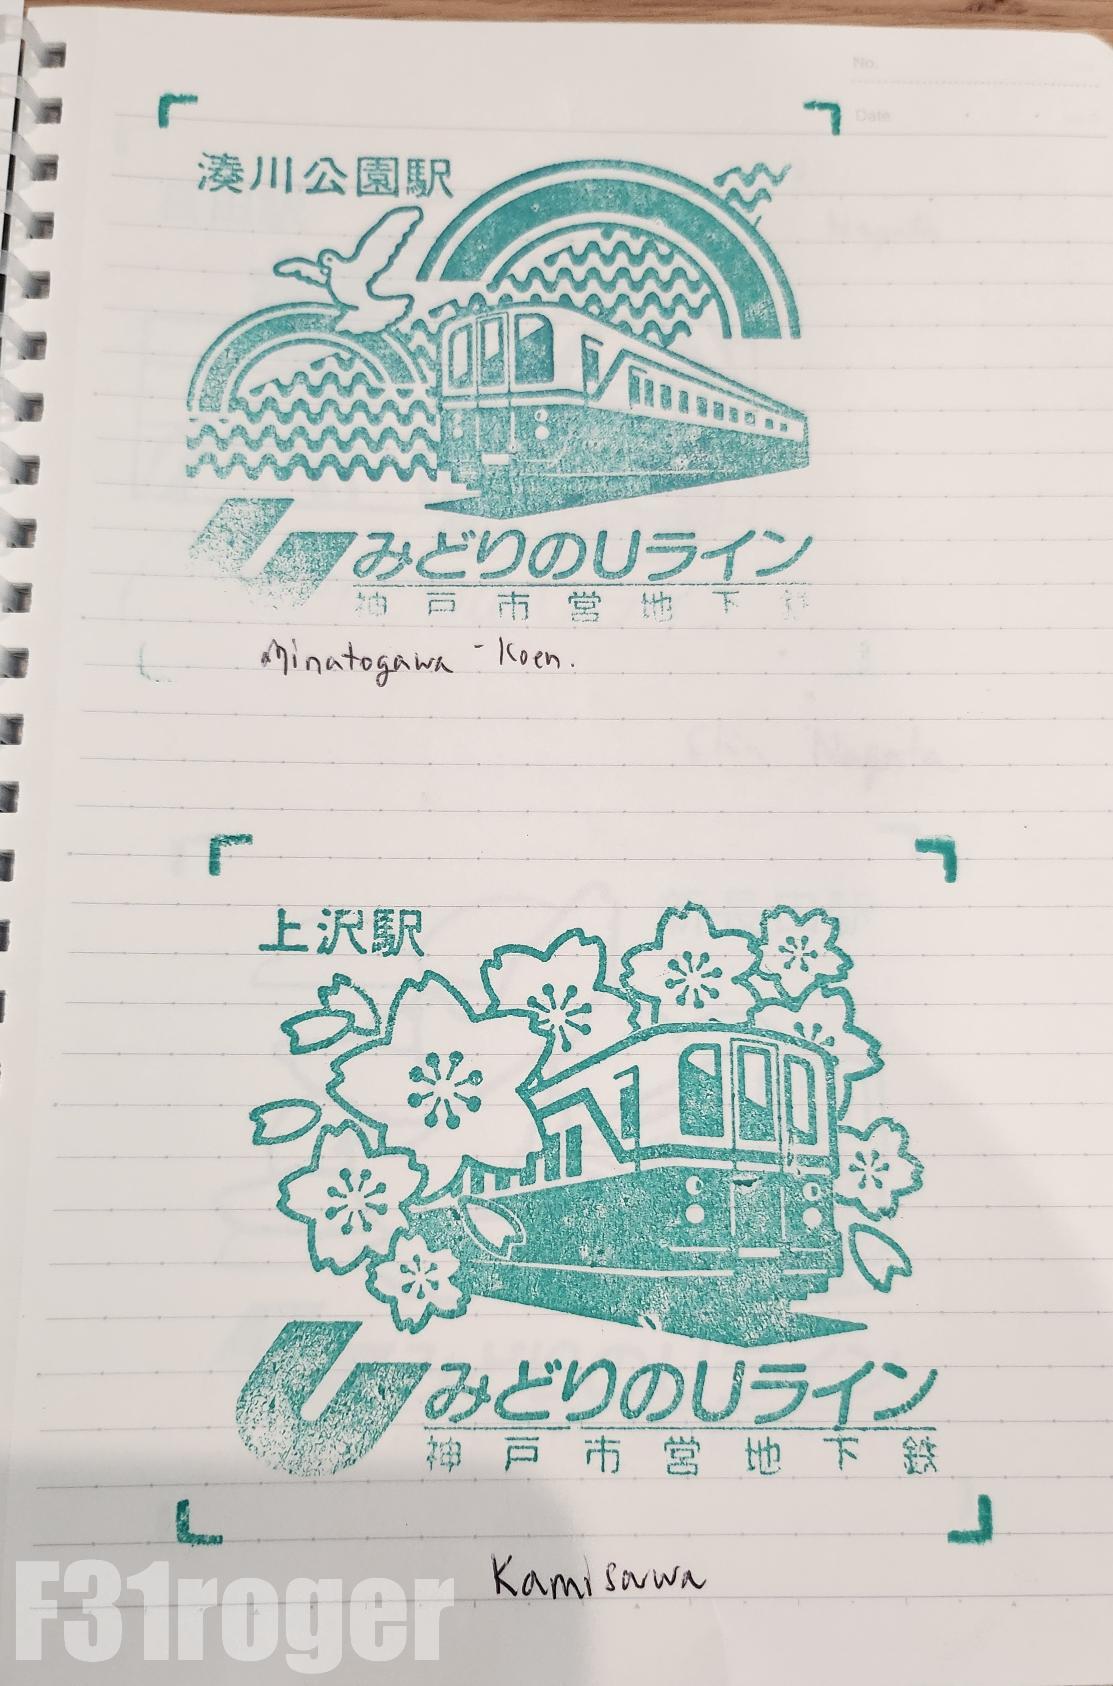 No.
Date
湊川公園駅
みどりのUライン
神戸市営地下鉄
Minatogawa-Koen.
上沢駅
みどりのUライン
神戸市営地下鉄
Kamisawa
F31roger